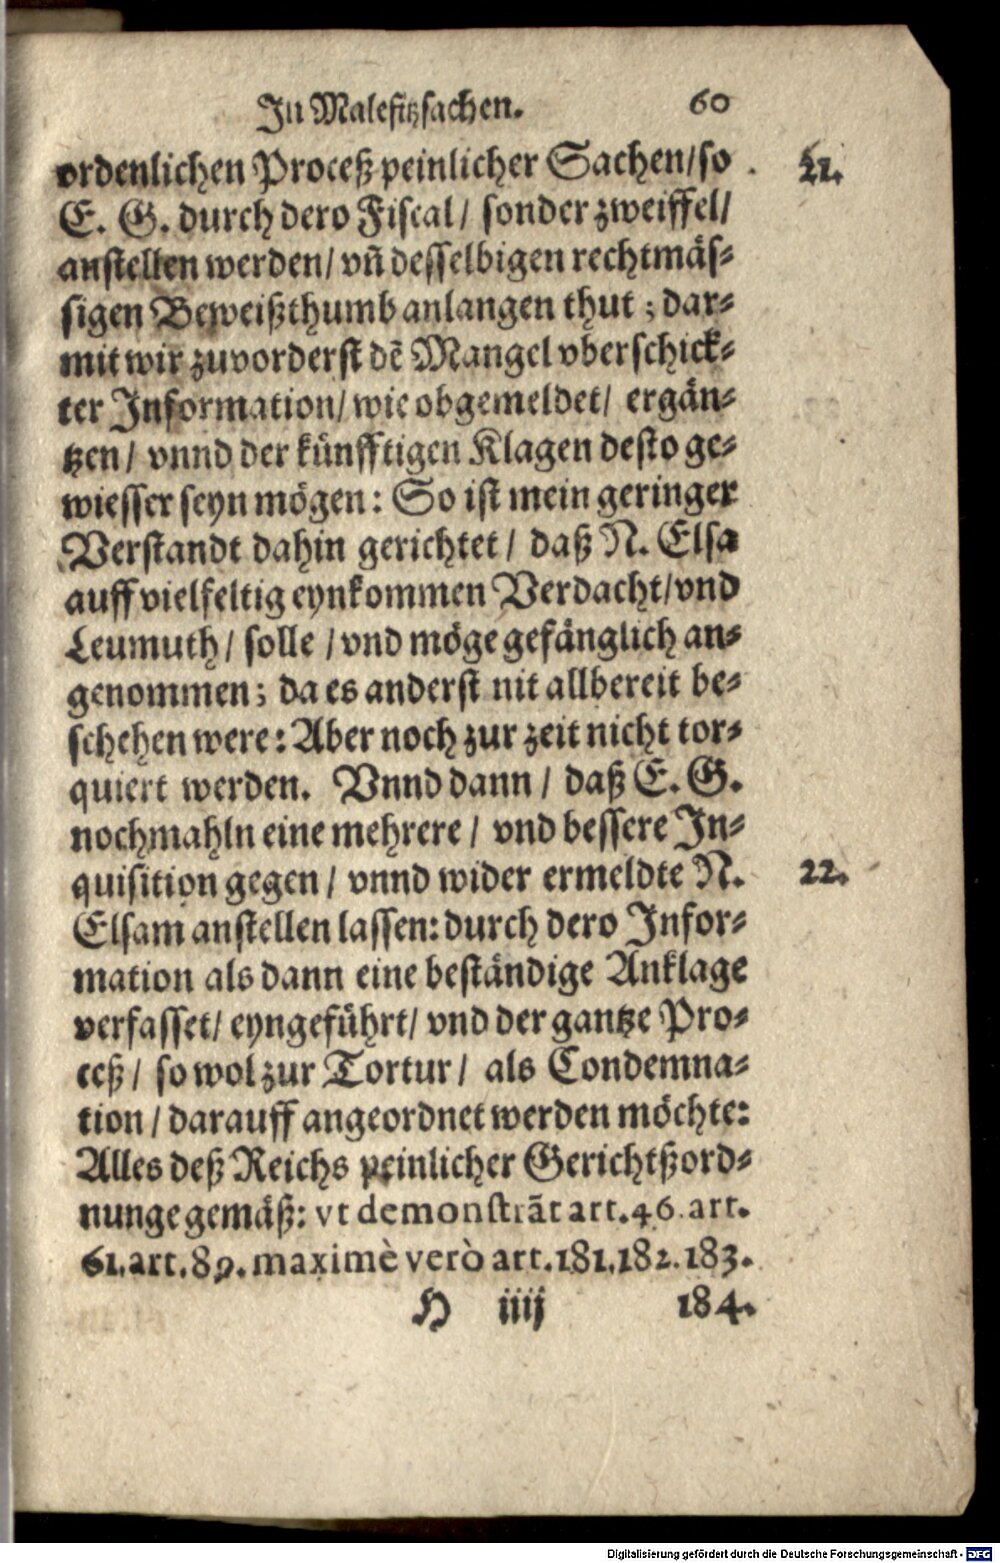 In Malefitzsachen. 60
ordenlichen Proceß peinlicher Sachen/ so 21.
E. G. durch dero Fiscal/ sonder zweiffel/
anstellen werden/ vñ desselbigen rechtmäs-
sigen Beweißthumb anlangen thut; dar-
mit wir zuvorderst dē Mangel vberschick-
ter Information/ wie obgemeldet/ ergän-
tzen/ vnnd der künfftigen Klagen desto ge-
wiesser seyn mögen: So ist mein geringer
Verstandt dahin gerichtet/ daß N. Elsa
auff vielfeltig eynkommen Verdacht/ vnd
Leumuth/ solle/ vnd möge gefänglich an-
genommen; da es anderst nit allbereit be-
schehen were: Aber noch zur zeit nicht tor-
quiert werden. Vnnd dann/ daß E. G.
nochmahln eine mehrere/ vnd bessere In-
quisition gegen/ vnnd wider ermeldte N. 22.
Elsam anstellen lassen: durch dero Infor-
mation als dann eine beständige Anklage
verfasset/ eyngeführt/ vnd der gantze Pro-
ceß/ so wol zur Tortur/ als Condemna-
tion/ darauff angeordnet werden möchte:
Alles deß Reichs peinlicher Gerichtßord-
nunge gemäß: vt demonstrāt art. 46. art.
61. art. 89. maximè verò art. 181. 182. 183.
H iiij 184.
Digitalisierung gefördert durch die Deutsche Forschungsgemeinschaft - DFG